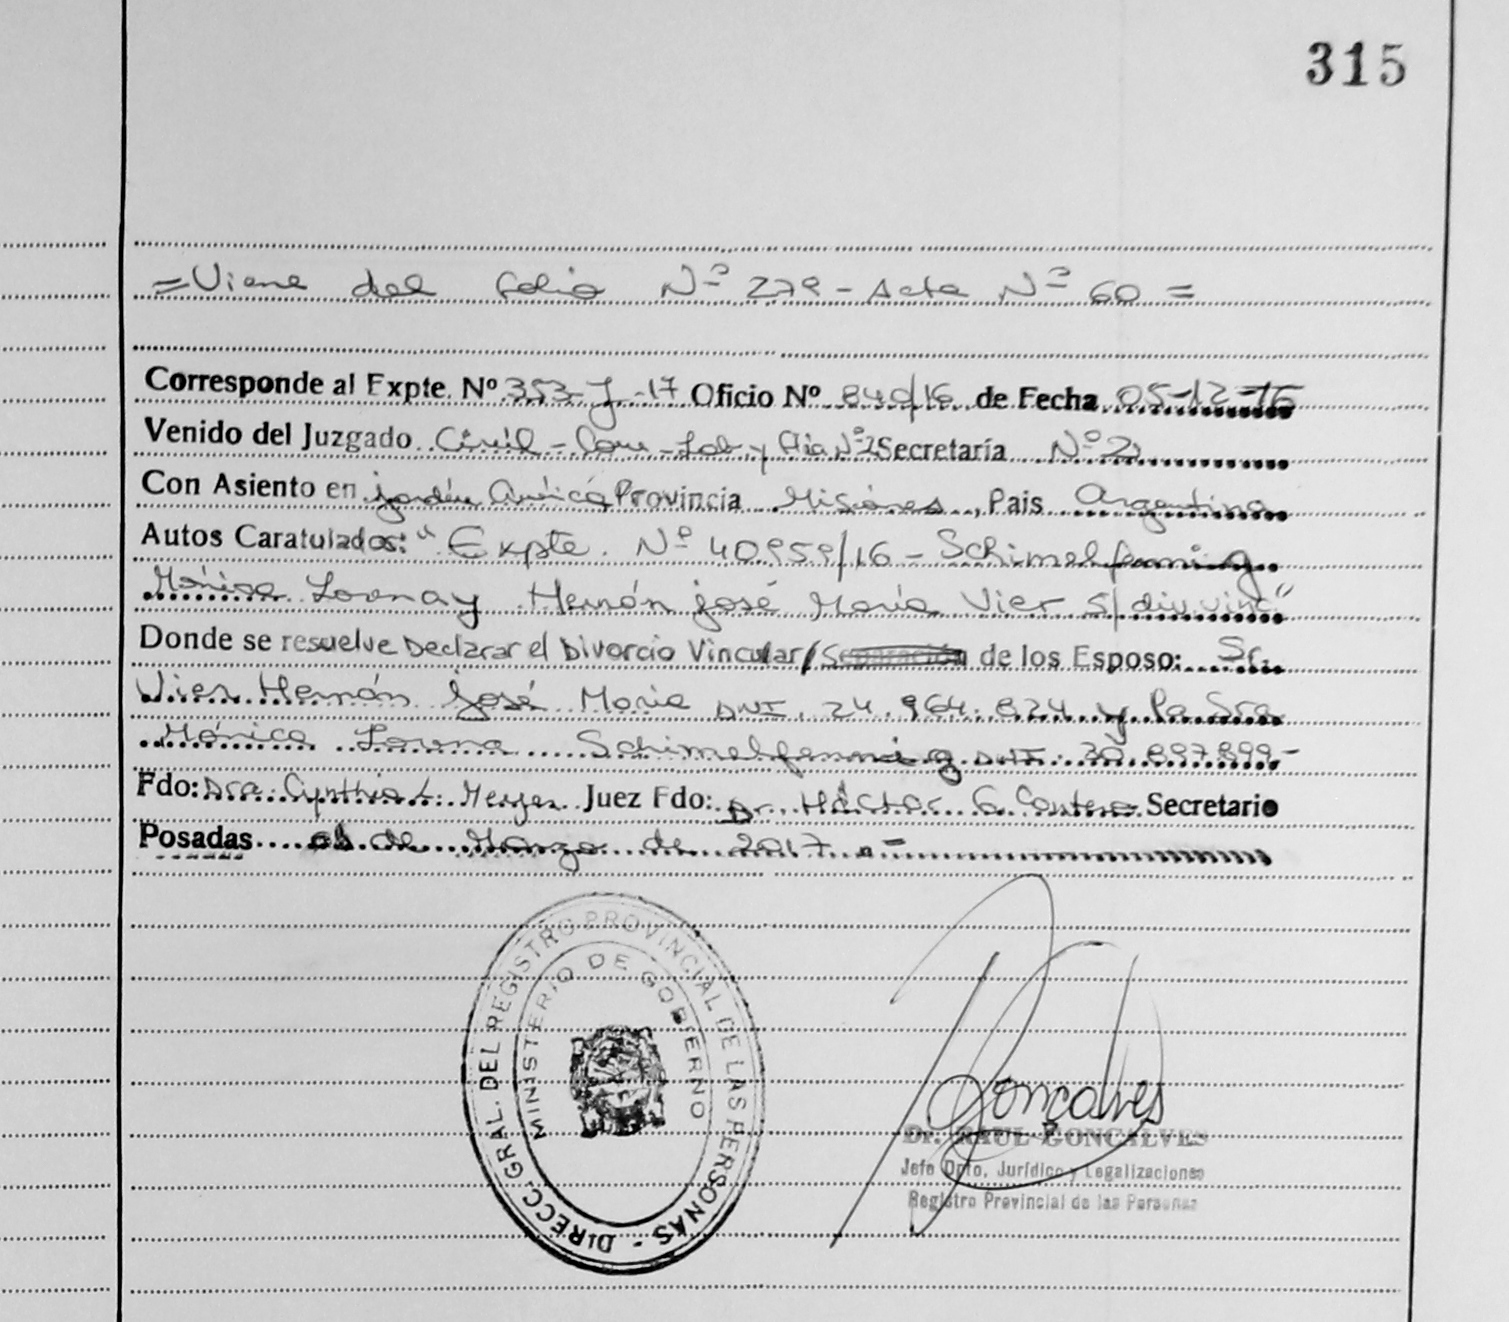 315
=Viene del folio Nº 279 - Acta Nº 60 =
Corresponde al Expte. Nº 353-J-17 Oficio Nº 840/16 de Fecha 05-12-16
Venido del Juzgado Civil - Com - Lab y Flia Nº 2 Secretaría Nº 2
Con Asiento en jardín América Provincia Misiones, Pais Argentina
Autos Caratulados: "Expte. Nº 40959/16 - Schimelfenning
Mónica Lorena y Hernán josé María Vier S/ div. vinc."
Donde se resuelve Declarar el Divorcio Vincular/Separación de los Esposo: Sr.
Vier Hernán josé Maria DNI. 24.964.824 y la Sra
Mónica Lorena Schimelfenning DNI. 30.897.899-
Fdo: Dra. Cynthia L. Juez Fdo: Dr. Héctor G. Secretario
Posadas de Marzo de 2017.-
DIRECC. GRAL. DEL REGISTRO PROVINCIAL DE LAS PERSONAS -
MINISTERIO DE GOBIERNO
Gonçalves
Dr. RAUL GONCALVES
Jefe Dpto. Jurídico y Legalizaciones
Registro Provincial de las Personas